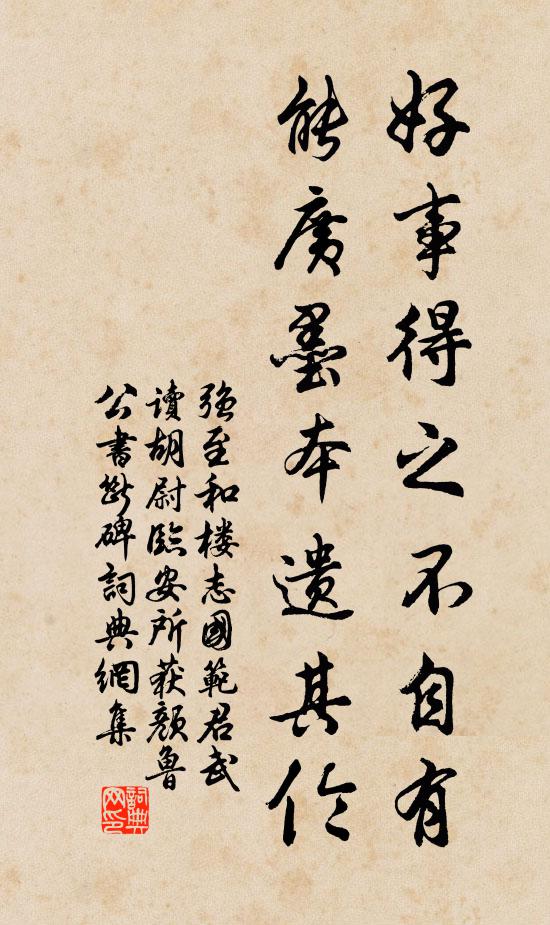 好事得之不自有
能廣墨本遺其伶
強至和楼志國範君武
讀胡尉臨安所获顏魯
公書斷碑詞典網集
詞典网印